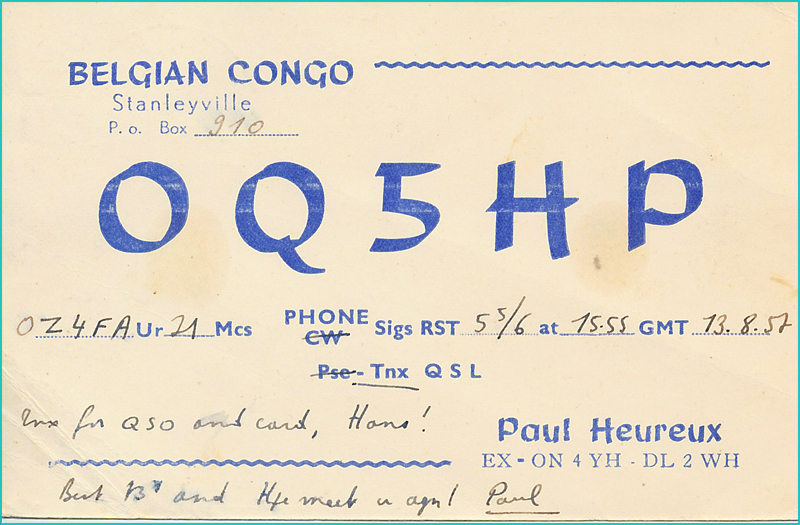 BELGIAN CONGO
Stanleyville
P. o. Box 910
OQ5HP
OZ4FA Ur 21 Mcs PHONE CW Sigs RST 5 5/6 at 15.55 GMT 13.8.57
Pse - Tnx QSL
Tnx for QSO and card, Hans!
Paul Heureux
EX - ON 4 YH - DL 2 WH
Best 73 and Hpe meet u agn! Paul